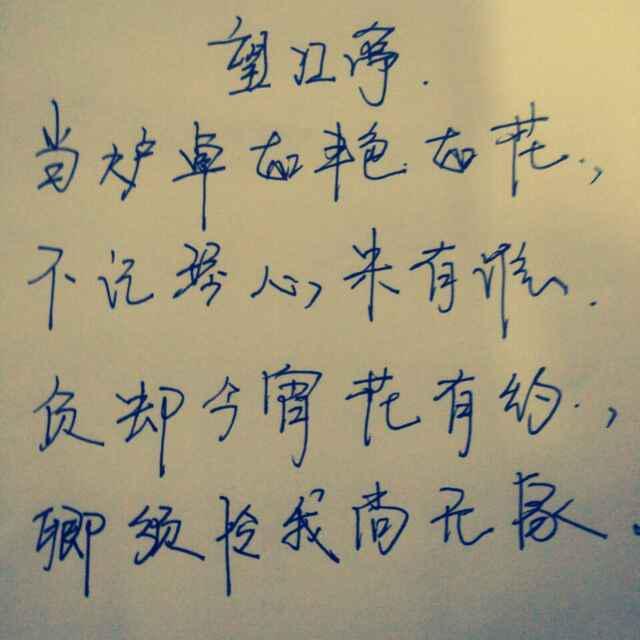 望江亭.
当炉卓如艳如花,
不记琴心未有
负却今宵花有约,
卿须怜我尚无家.